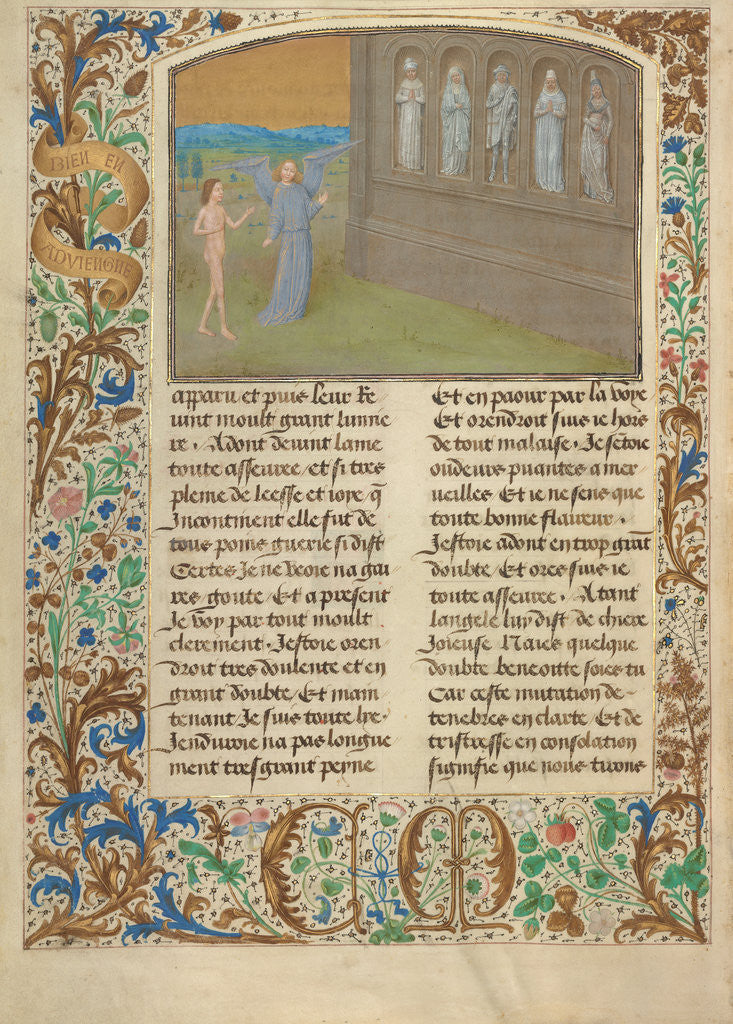 BIEN EN
ADVIENGNE
apparu et puis leur Re
uint moult grant lumie
re. Adont deuint lame
toute asseuree et si tres
pleine de leesse et ioye q̄
Incontinent elle fut de
tous poins guerie si dist
Certes Je ne veoie na gai
res goute Et a present
Je voy par tout moult
clerement. Jestoie oren
droit tres doulente et en
grant doubte Et main
tenant Je suis toute lye.
Jenduroie na pas longue
ment tresgrant peine
Et en paour par la voye
Et orendroit suis ie hors
de tout malaise. Je setoie
oudeurs puantes a mer
ueilles Et ie ne sens que
toute bonne flaueur.
Jestoie adont en trop grāt
doubte Et ores suis ie
toute asseuree. Atant
langele luy dist de chiere
Joieuse Naies quelque
doubte beneoitte soies tu
Car ceste mutation de
tenebres en clarte Et de
tristresse en consolation
signifie que nous tirons
CM